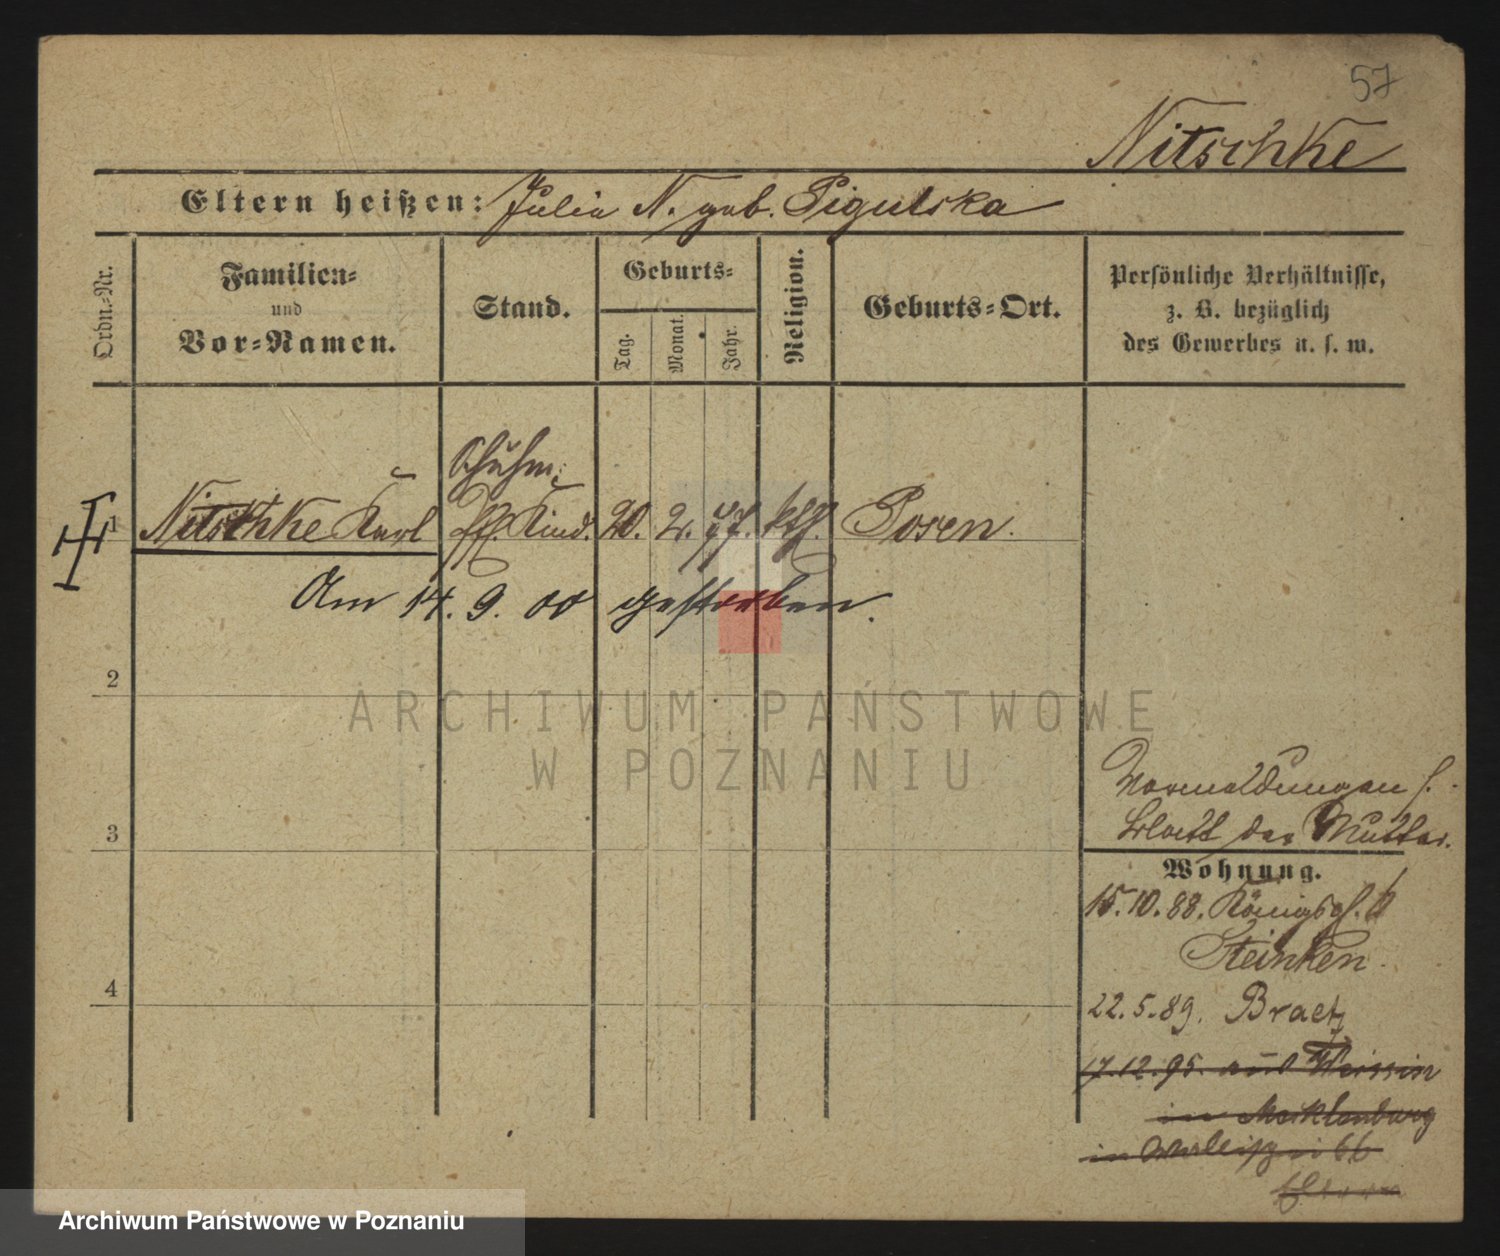 57
Nitschke
Eltern heißen: Julia N. geb. Pigulska
Ordn.-Nr.
Familien-
und
Vor-Namen.
Stand.
Geburts-
Tag.
Monat.
Jahr.
Religion.
Geburts-Ort.
Persönliche Verhältnisse,
z. B. bezüglich
des Gewerbes u. s. w.
Schuhm.
1 Nitschke Karl Kind. 20. 2. 77. kth. Posen.
Am 14. 9. 00 gestorben.
2
ARCHIWUM PAŃSTWOWE
W POZNANIU
3
4
Vormeldungen s.
Blatt der Mutter.
Wohnung.
15.10.88. Königspl. 6
Steinken.
22.5.89. Braetz
17.12.95. aus
in Mecklenburg
in 66
Eltern
Archiwum Państwowe w Poznaniu